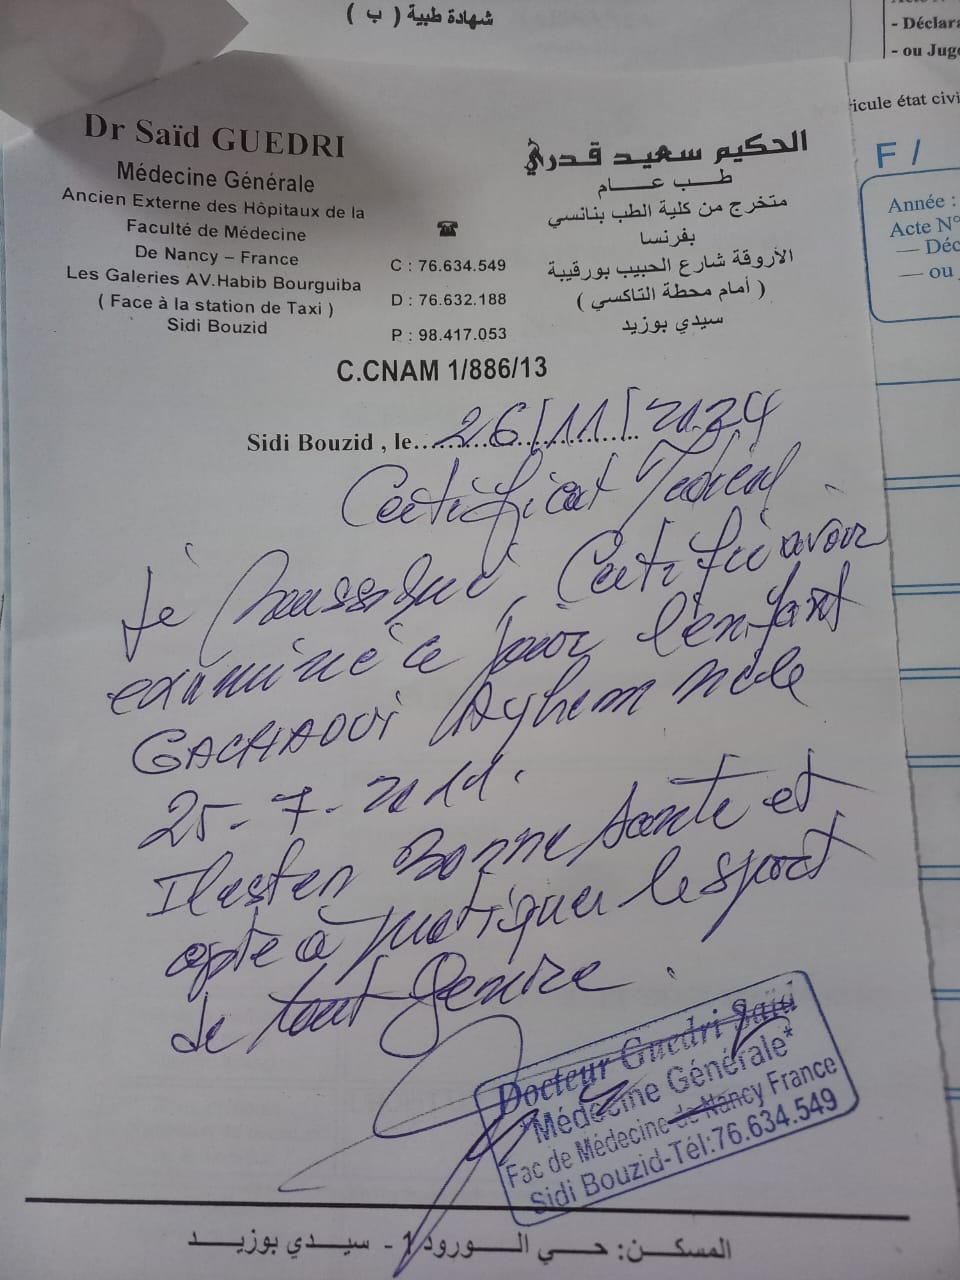 شهادة طبية ( ب )
- Déclara
- ou Juge
ricule état civi
F /
Année :
Acte N°
— Déc
— ou
Dr Saïd GUEDRI
Médecine Générale
Ancien Externe des Hôpitaux de la
Faculté de Médecine
De Nancy – France
Les Galeries AV.Habib Bourguiba
( Face à la station de Taxi )
Sidi Bouzid
☎
C : 76.634.549
D : 76.632.188
P : 98.417.053
الحكيم سعيد قدري
طب عام
متخرج من كلية الطب بنانسي
بفرنسا
الأروقة شارع الحبيب بورقيبة
( أمام محطة التاكسي )
سيدي بوزيد
C.CNAM 1/886/13
Sidi Bouzid , le 26/11/2024
Certificat Médical
Je soussigné, Certifie avoir
examiné ce jour l'enfant
GACHAOUI Ayhem né le
25-7-2011.
Il est en Bonne Santé et
apte à pratiquer le sport
de tout Genre.
Docteur Guedri Saïd
*Médecine Générale*
Fac de Médecine de Nancy France
Sidi Bouzid-Tél:76.634.549
المسكن: حي الورود 1 - سيدي بوزيد